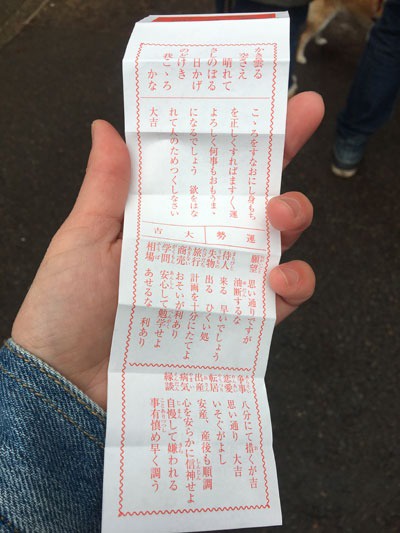 かき雲る
空さえ
晴れて
さしのぼる
日かげ
のどけき
我こゝろ
かな
こゝろをすなおにし身もち
を正しくすればます〱運
よろしく何事もおもうまゝ
になるでしょう 欲をはな
れて人のためつくしなさい
大吉
運勢 大吉
願望 思い通りですが
油断するな
待人 来る 早いでしょう
失物 出る ひくい処
旅行 計画を十分にたてよ
商売 おそいが利あり
学問 安心して勉学せよ
相場 あせるな 利あり
争事 八分にて措くが吉
恋愛 思い通り 大吉
転居 いそぐがよし
出産 安産、産後も順調
病気 心を安らかに信神せよ
縁談 自慢して嫌われる
事有慎め早く調う